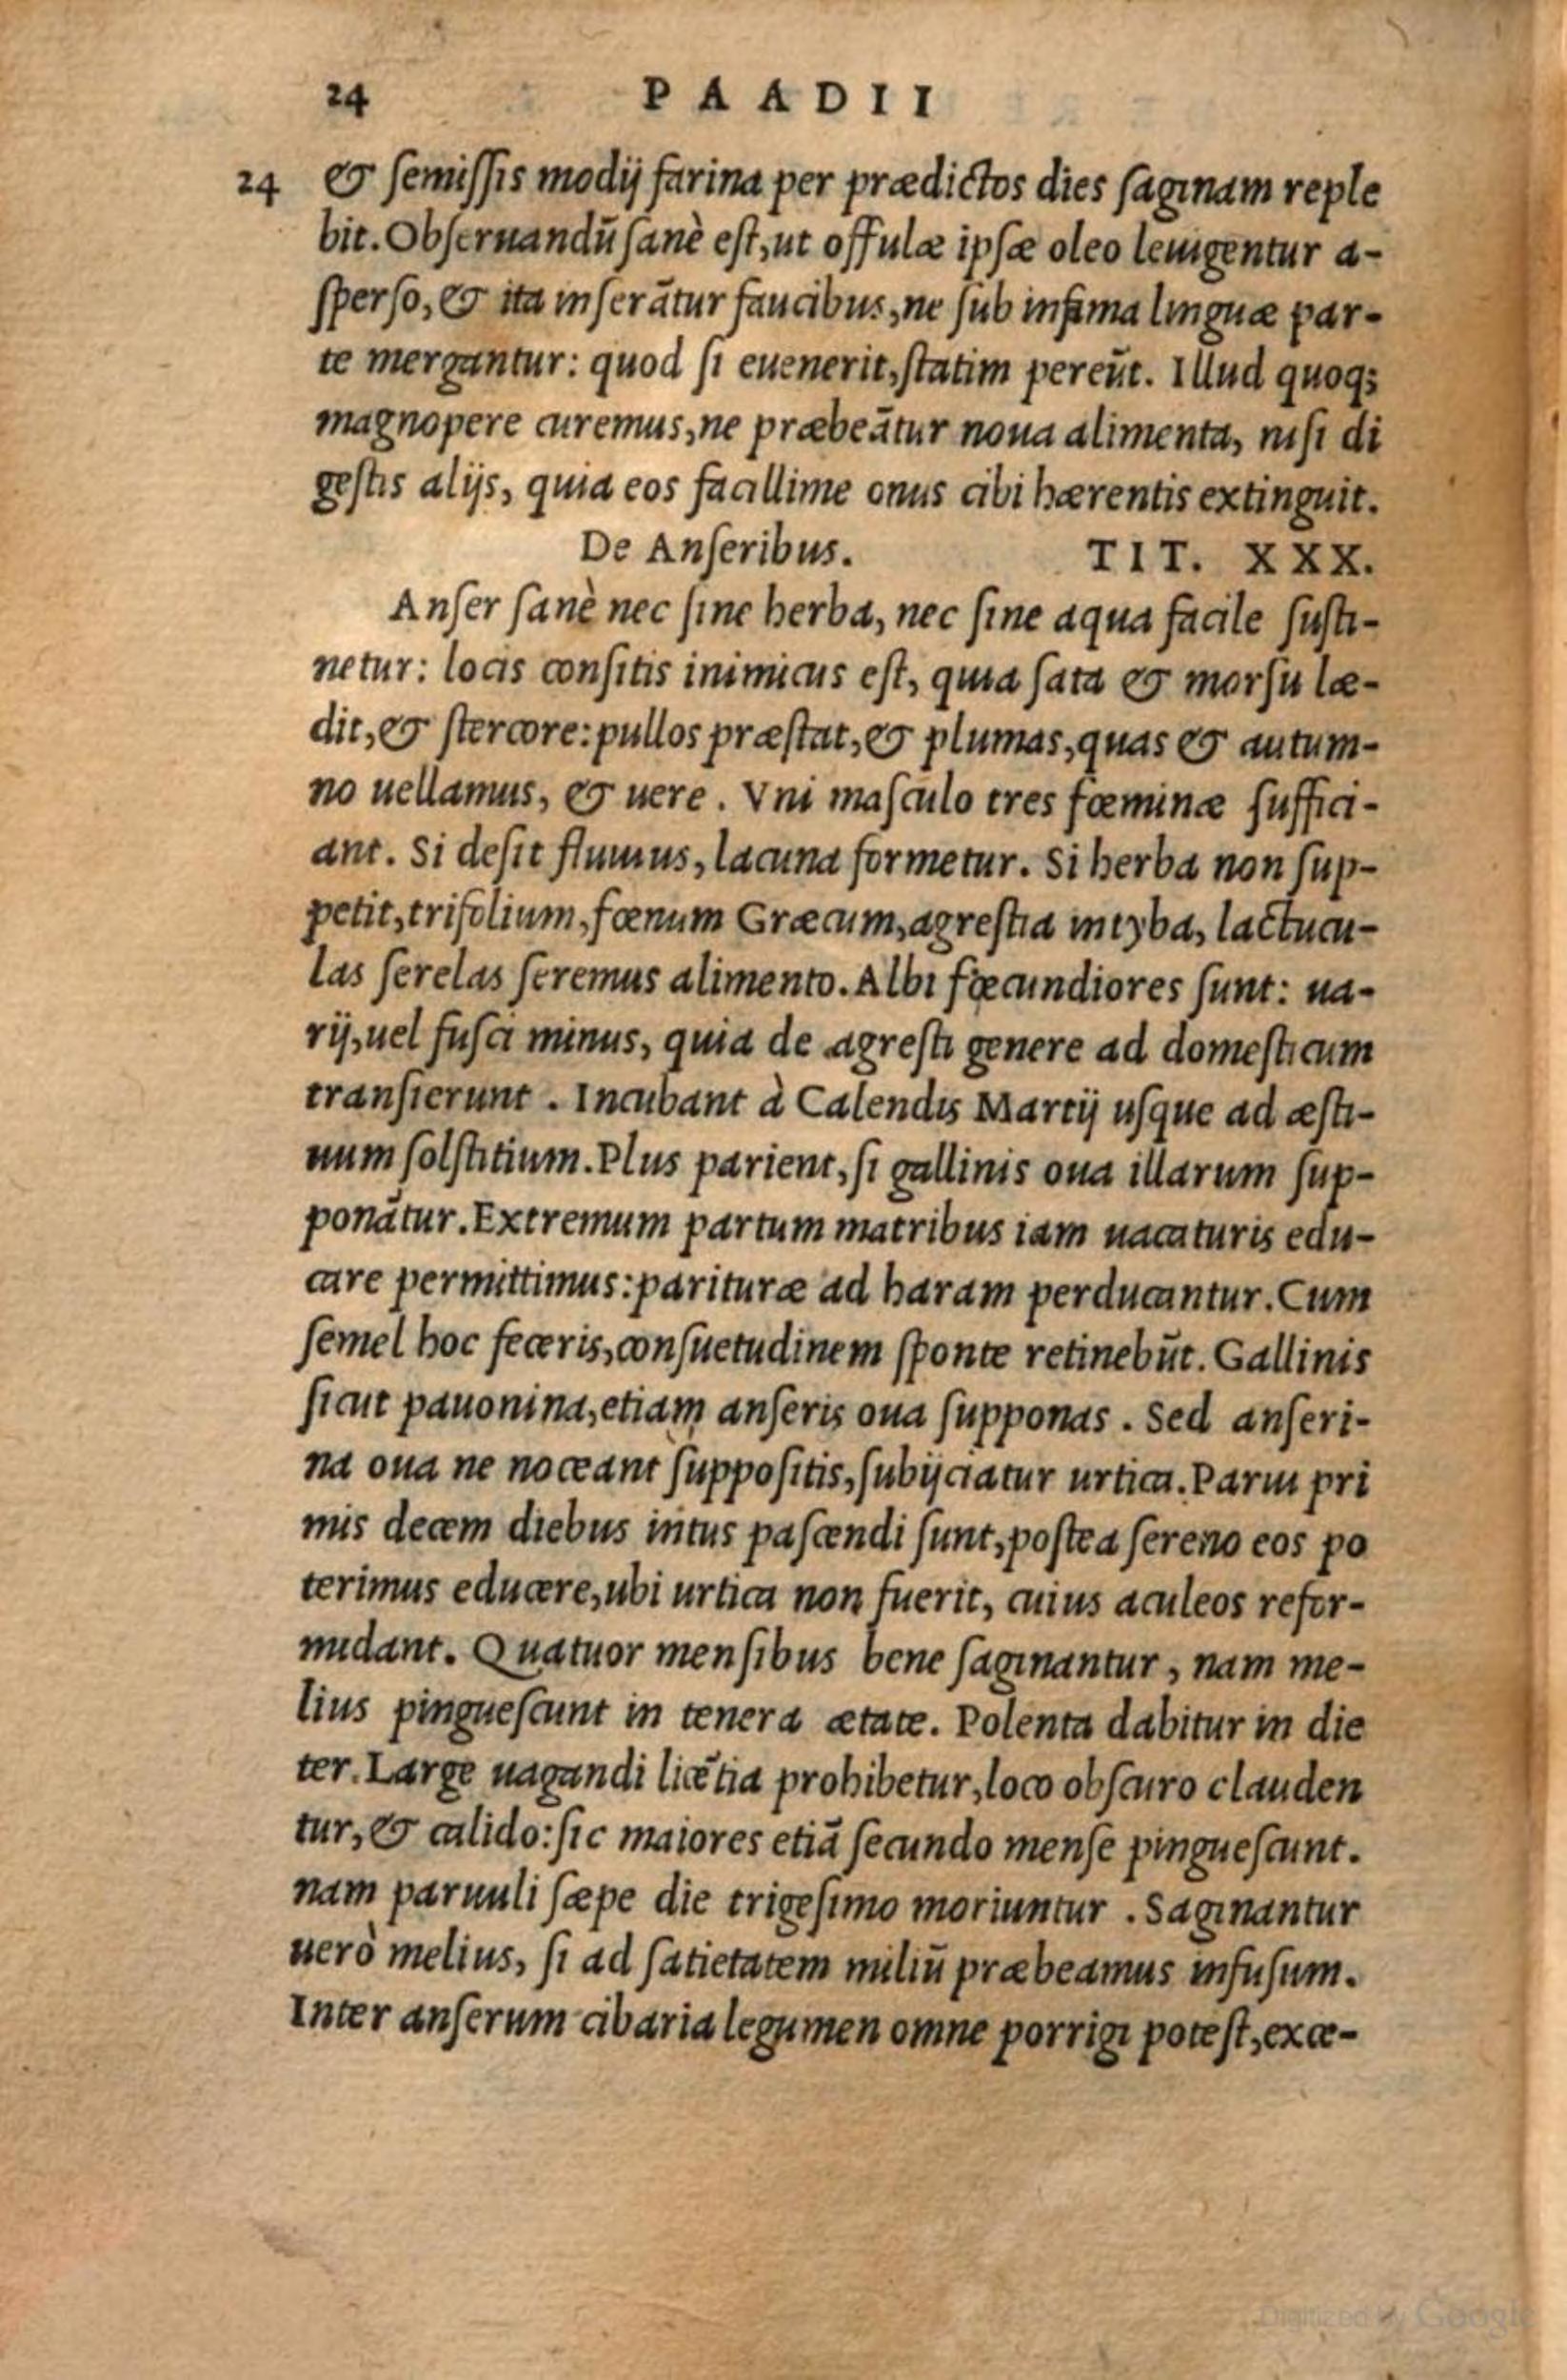 24 PAADII
24 & ſemiſſis modij farina per prædictos dies ſaginam reple
bit. Obſeruandũ ſanè eſt, ut offulæ ipſæ oleo leuigentur a-
ſperſo, & ita inſerãtur faucibus, ne ſub infima linguæ par-
te mergantur: quod ſi euenerit, ſtatim pereũt. Illud quoq;
magnopere curemus, ne præbeãtur noua alimenta, niſi di
geſtis alijs, quia eos facillime onus cibi hærentis extinguit.
De Anſeribus. TIT. XXX.
Anſer ſanè nec ſine herba, nec ſine aqua facile ſuſti-
netur: locis conſitis inimicus eſt, quia ſata & morſu læ-
dit, & ſtercore: pullos præſtat, & plumas, quas & autum-
no uellamus, & uere. Vni maſculo tres fœminæ ſuffici-
ant. Si deſit fluuius, lacuna formetur. Si herba non ſup-
petit, trifolium, fœnum Græcum, agreſtia intyba, lactucu-
las ſerelas ſeremus alimento. Albi fœcundiores ſunt: ua-
rij, uel fuſci minus, quia de agreſti genere ad domeſticum
tranſierunt. Incubant à Calendis Martij uſque ad æſti-
uum ſolſtitium. Plus parient, ſi gallinis oua illarum ſup-
ponãtur. Extremum partum matribus iam uacaturis edu-
care permittimus: parituræ ad haram perducantur. Cum
ſemel hoc feceris, conſuetudinem ſponte retinebũt. Gallinis
ſicut pauonina, etiam anſeris oua ſupponas. Sed anſeri-
na oua ne noceant ſuppoſitis, ſubijciatur urtica. Parui pri
mis decem diebus intus paſcendi ſunt, poſtea ſereno eos po
terimus educere, ubi urtica non fuerit, cuius aculeos refor-
midant. Quatuor menſibus bene ſaginantur, nam me-
lius pingueſcunt in tenera ætate. Polenta dabitur in die
ter. Large uagandi licẽtia prohibetur, loco obſcuro clauden
tur, & calido: ſic maiores etiã ſecundo menſe pingueſcunt.
nam paruuli ſæpe die trigeſimo moriuntur. Saginantur
uerò melius, ſi ad ſatietatem miliũ præbeamus infuſum.
Inter anſerum cibaria legumen omne porrigi poteſt, exce-
Digitized by Google